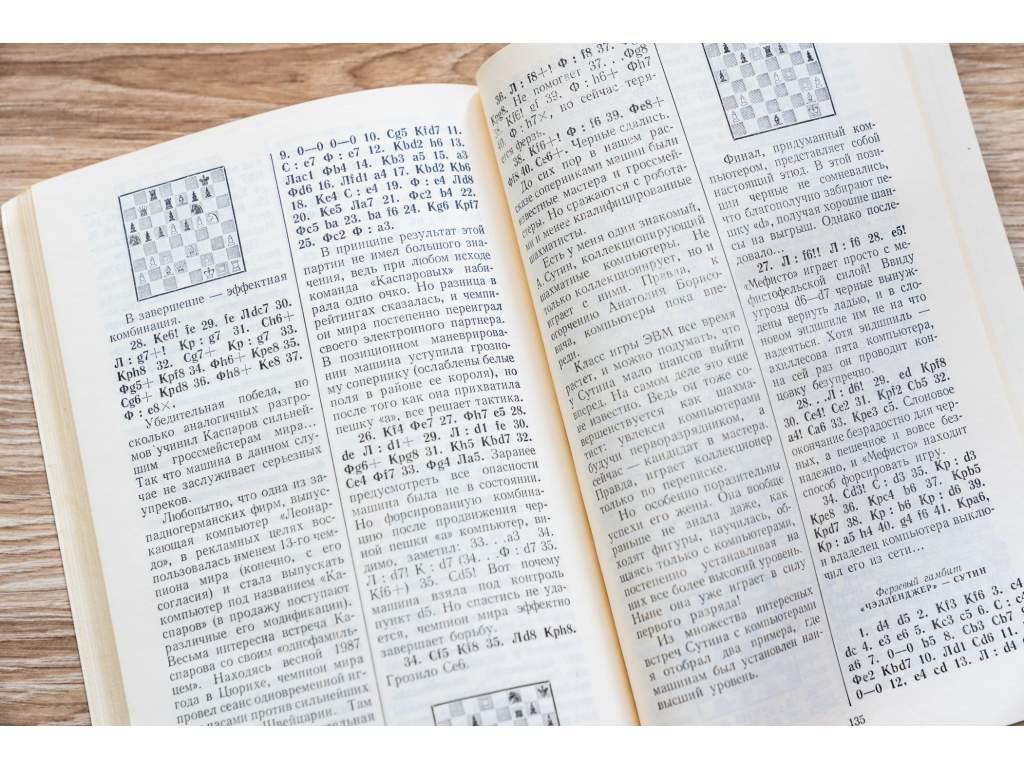 В завершение — эффектная
комбинация.
28. Кe6! fe 29. fe Лdc7 30.
Л : g7+! Кр : g7 31. Ch6+
Крh8 32. Cg7+ Кр : g7 33.
Фg5+ Крf8 34. Фh6+ Крe8 35.
Cg6+ Крd8 36. Фh8+ Кe8 37.
Ф : e8×.
Убедительная победа, но
сколько аналогичных разгро-
мов учинил Каспаров сильней-
шим гроссмейстерам мира...
Так что машина в данном слу-
чае не заслуживает серьезных
упреков.
Любопытно, что одна из за-
падногерманских фирм, выпус-
кающая компьютер «Леонар-
до», в рекламных целях вос-
пользовалась именем 13-го чем-
пиона мира (конечно, с его
согласия) и стала выпускать
компьютер под названием «Ка-
спаров» (в продажу поступают
различные его модификации).
Весьма интересна встреча Ка-
спарова со своим «однофамиль-
цем». Находясь весной 1987
года в Цюрихе, чемпион мира
провел сеанс одновременной иг-
часами против сильнейших
Швейцарии. Там
9. 0—0 0—0 10. Cg5 Кfd7 11.
С : e7 Ф : e7 12. Кbd2 h6 13.
Лac1 Фb4 14. Кb3 a5 15. a3
Фd6 16. Лfd1 a4 17. Кbd2 Кb6
18. Кe4 С : e4 19. Ф : e4 Лd8
20. Кe5 Лa7 21. Фc2 b4 22.
Фc5 ba 23. ba f6 24. Кg6 Крf7
25. Фc2 Ф : a3.
В принципе результат этой
партии не имел большого зна-
чения, ведь при любом исходе
команда «Каспаровых» наби-
рала одно очко. Но разница в
рейтингах сказалась, и чемпи-
он мира постепенно переиграл
своего электронного партнера.
В позиционном маневрирова-
нии машина уступила грозно-
му сопернику (ослаблены белые
поля в районе ее короля), но
после того как она прихватила
пешку «a», все решает тактика.
26. Кf4 Фe7 27. Фh7 e5 28.
de Л : d1+ 29. Л : d1 fe 30.
Фg6+ Крg8 31. Кh5 Кbd7 32.
Ce4 Фf7 33. Фg4 Лa5. Заранее
предусмотреть все опасности
машина была не в состоянии.
Но форсированную комбина-
цию после продвижения чер-
ной пешки «a» компьютер, ви-
димо, заметил: 33...a3 34.
Л : d7! К : d7 (34...Ф : d7 35.
Кf6+) 35. Cd5! Вот почему
машина взяла под контроль
пункт d5. Но спастись не уда-
ется, чемпион мира эффектно
завершает борьбу.
34. Cf5 Кf8 35. Лd8 Крh8.
Грозило Ce6.
36. Л : f8+! Ф : f8 37.
Крg8. Не помогает 37...Фg8
38. Кf6! gf 39. Ф : h6+ Фh7
40. Ф : h7×, но сейчас теря-
ется ферзь.
38. Кf6+! Ф : f6 39. Фe8+
Фf8 40. Ce6+. Черные сдались.
До сих пор в нашем рас-
сказе соперниками машин были
известные мастера и гроссмей-
стеры. Но сражаются с робота-
ми и менее квалифицированные
шахматисты.
Есть у меня один знакомый,
А. Сутин, коллекционирующий
шахматные компьютеры. Не
только коллекционирует, но и
играет с ними. Правда, к
огорчению Анатолия Борисо-
вича, компьютеры пока впе-
реди.
Класс игры ЭВМ все время
растет, и можно подумать, что
у Сутина мало шансов выйти
вперед. На самом деле это еще
не известно. Ведь он тоже со-
вершенствуется как шахма-
тист: увлекся компьютерами
будучи перворазрядником, а
сейчас — кандидат в мастера.
Правда, играет коллекционер
только по переписке.
Но особенно поразительны
успехи его жены. Она вообще
раньше не знала даже, как
ходят фигуры, научилась, об-
щаясь только с компьютерами,
постепенно устанавливая на
них все более высокий уровень.
Ныне она уже играет в силу
первого разряда!
Из множества интересных
встреч Сутина с компьютерами
я отобрал два примера, где
машинам был установлен наи-
высший уровень.
Финал, придуманный ком-
пьютером, представляет собой
настоящий этюд. В этой пози-
ции черные не сомневались,
что благополучно забирают пе-
шку «b», получая хорошие шан-
сы на выигрыш. Однако после-
довало...
27. Л : f6!! Л : f6 28. e5!
«Мефисто» играет просто с ме-
фистофельской силой! Ввиду
угрозы d6—d7 черные вынуж-
дены вернуть ладью, и в сло-
новом эндшпиле им не на что
надеяться. Хотя эндшпиль —
ахиллесова пята компьютера,
на сей раз он проводит кон-
цовку безупречно.
28...Л : d6! 29. ed Крf8
30. Ce4! Ce2 31. Крf2 Cb5 32.
a4! Ca6 33. Крe3 c5. Слоновое
окончание безрадостно для чер-
ных, а пешечное и вовсе без-
надежно, и «Мефисто» находит
способ форсировать игру.
34. Cd3! С : d3 35. Кр : d3
Крe8 36. Крc4 b6 37. Крb5
Крd7 38. Кр : b6 Кр : d6 39.
Кр : a5 h4 40. g4 f6 41. Крa6,
и владелец компьютера выклю-
чил его из сети...
Ферзевый гамбит
«ЧЭЛЛЕНДЖЕР» — СУТИН
1. d4 d5 2. Кf3 Кf6 3. c4
dc 4. e3 e6 5. Кc3 c5 6. С : c4
a6 7. 0—0 b5 8. Cb3 Cb7
Фe2 Кbd7 10. Лd1 Cd6 11.
0—0 12. e4 cd 13. Л : d4
135